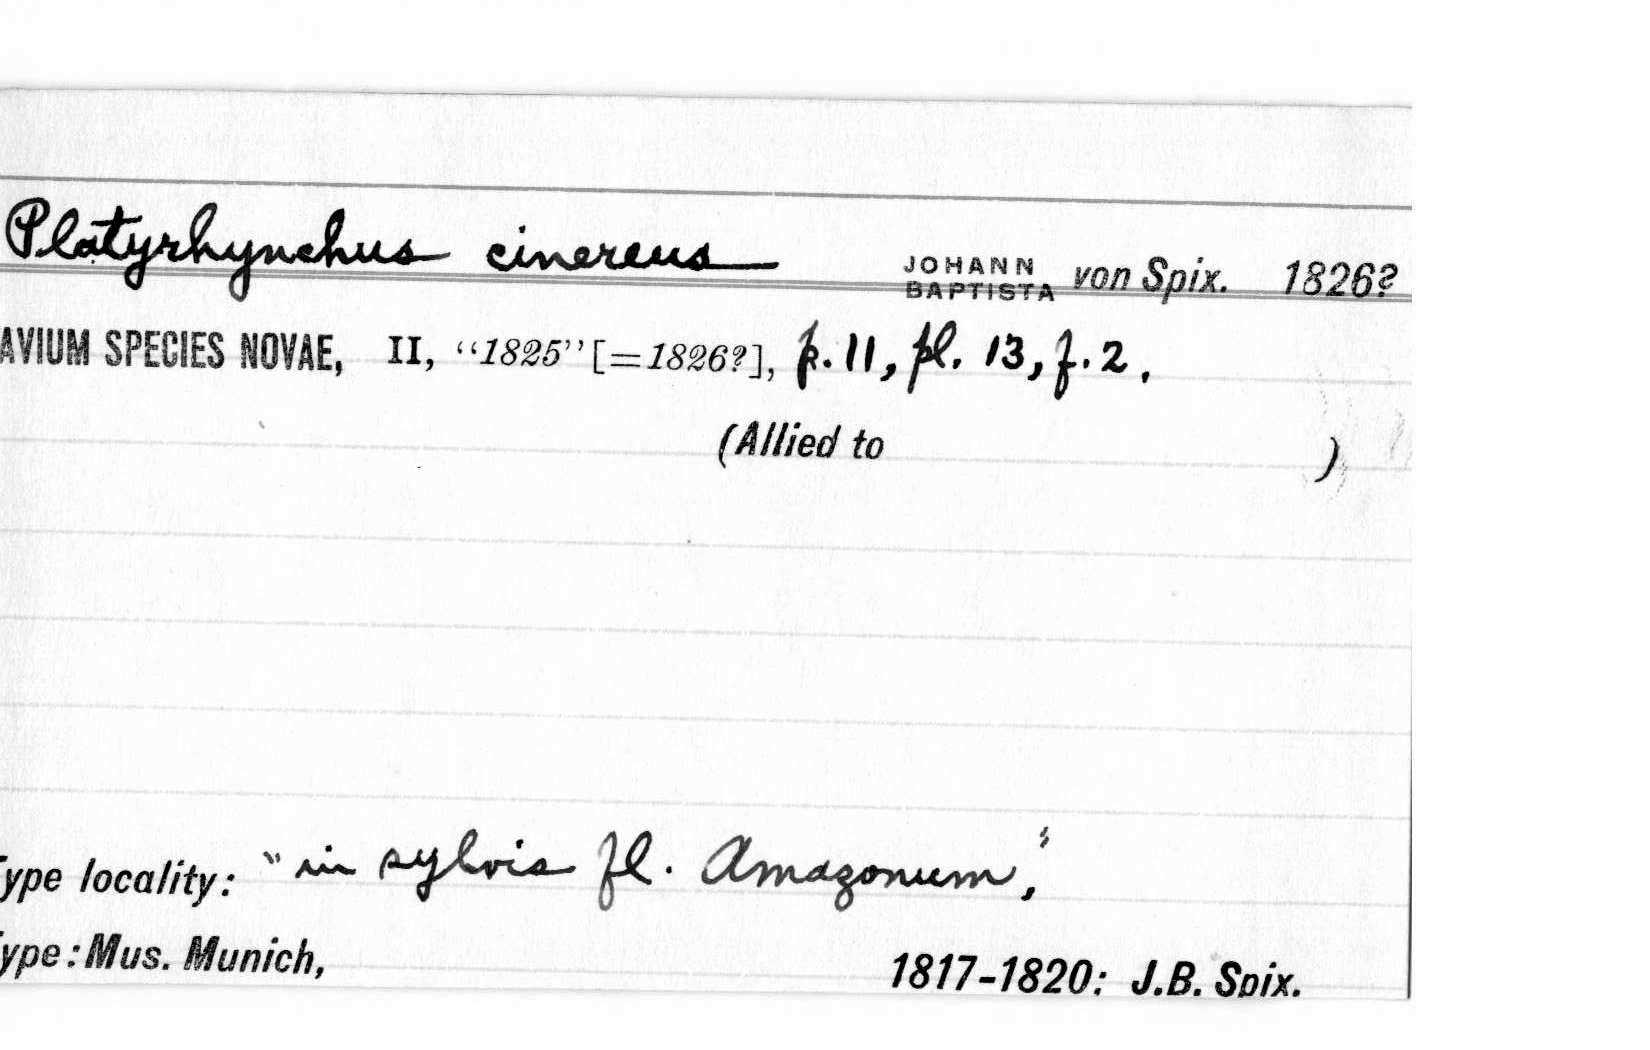 Platyrhynchus cinereus JOHANN BAPTISTA von Spix. 1826?
AVIUM SPECIES NOVAE, II, "1825" [=1826?], p. 11, pl. 13, f. 2.
(Allied to )
Type locality: "in sylvis fl. Amazonum,"
Type: Mus. Munich, 1817-1820: J.B. Spix.